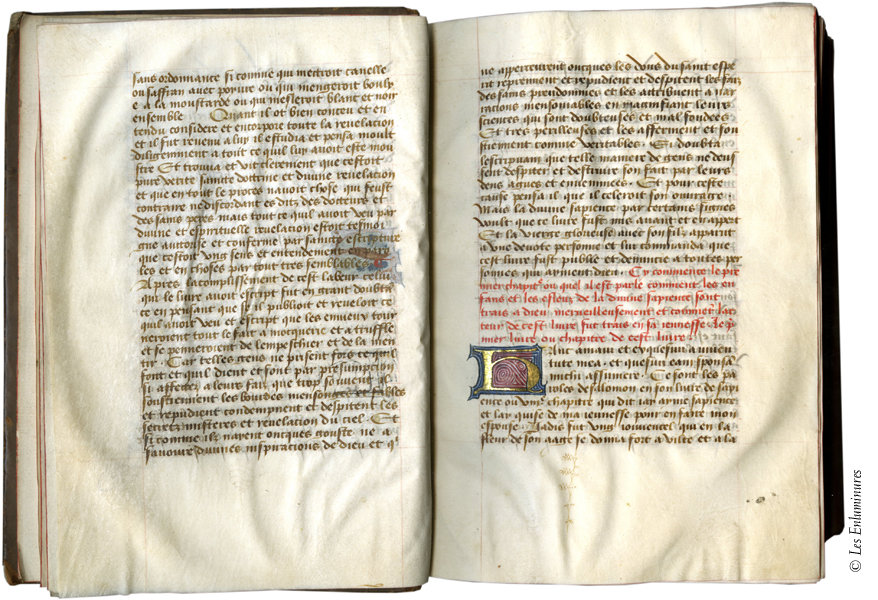 sans ordonnance si comme qui mettroit canelle
ou saffran avec poivre ou qui mengeroit bouly
e a la moustarde ou qui mesleroit blanc et noir
ensemble Quant il ot bien conceu et en
tendu considere et encorpore toute la revelation
et il fut revenu a luy il estudia et pensa moult
diligemment a tout ce qui luy avoit este mou
stre Et trouva et vit clerement que cestoit
pure verite sainte dottrine et divine revelation
et que en tout le proces navoit chose qui feust
contraire ne discordant es ditz des dotteurs et
des sains peres mais tout ce quil avoit veu par
divine et espirituelle revelation estoit tesmoi
gne auttorise et conferme par saincte escripture
que cestoit ung sens et entendement
les et en choses par tout tres semblables
Apres lacomplissement de cest labeur celui
qui le livre avoit escript fut en grant doubta
ce en pensant que sil publioit et reveloit ce
quil avoit veu et escript que les envieux tour
neroient tout le fait a mocquerie et a truffle
et se penneroient de lempeschier et de la men
tir Car telles gens ne prisent fors ce quil
font et quil dient et sont par presumption
si affettez a leur fait que trop souvent ilz
soustiennent les bourdes mensonges et fables
et repudient condempnent et despitent les
secretz misteres et revelation du ciel Et
si comme ilz nayent oncques gouste ne a
savoure divines inspirations de dieu et qi
ne apperceurent oncques les dons du saint espe
rit repreuvent et repudient et despitent les faiz
des sains preudommes et les attribuent a nar
rations mensongables en magnifiant leurs
sciences qui sont doubteuses et mal fondees
Et tres perilleuses et les afferment et sou
stiennent comme veritables Si doubta
lescripvant que telle maniere de gens ne deus
sent despiter et destruire son fait par leurs
dens agues et envenimees Et pour ceste
cause pensa il que il celeroit son ouvrage
Mais la divine sapience par certains signes
voult que ce livre fust mis avant et
Et la vierge glorieuse avec son filz apparut
a une devote personne et lui commanda que
cest livre fust publie et denuncie a toutes per
sonnes qui ayment dieu Cy commence le pre
mier chapitre ou quel il est parle comment les en
fans et les esleuz de la divine sapience sont
trais a dieu merveilleusement et comment lac
teur de cest livre fut trais en sa jeunesse le p
mier livre ou chapitre de cest livre
Hanc amavi et exquisivi a iuven
tute mea et quesivi eam sponsam
michi assumere Ce sont les pa
roles de salomon en son livre de sapi
ence ou chapitre qui dit jay ayme sapience
et lay quise de ma jeunesse pour en faire mon
espouse Jadis fut ung jouvencel qui en la
fleur de son aage se donna fort a et a la
© Les Enluminures